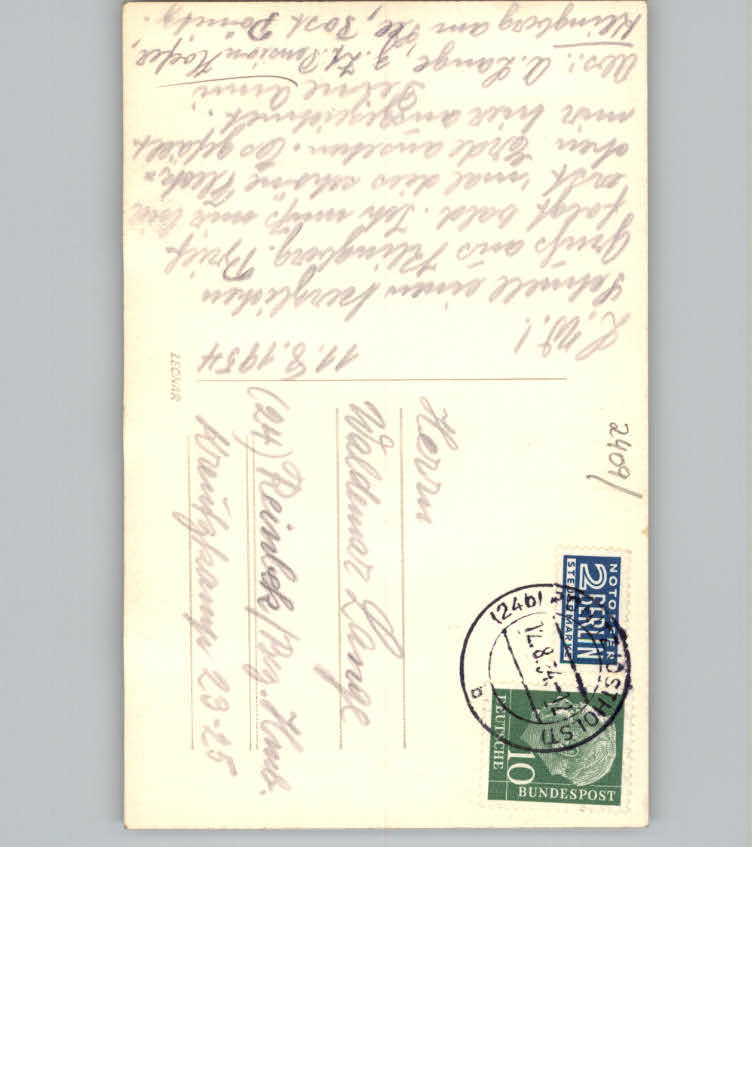 11.8.1954
L. W.!
Schnell einen herzlichen
Gruß aus Klingberg. Brief
folgt bald. Ich muß mir hier
erst 'mal dies schöne Fleck-
chen Erde ansehen. Es gefällt
mir hier ausgezeichnet.
Deine Anni
Abs.: A. Lange, z. Zt. Pension
Klingberg am See, Post
LEONAR
Herrn
Waldemar Lange
(24) Reinbek / Bzg. Hmb.
23-25
2409/
NOTOPFER
2 BERLIN
STEUERMARKE
DEUTSCHE
BUNDESPOST
10
(24b)
(OSTHOLST)
12.8.54
b